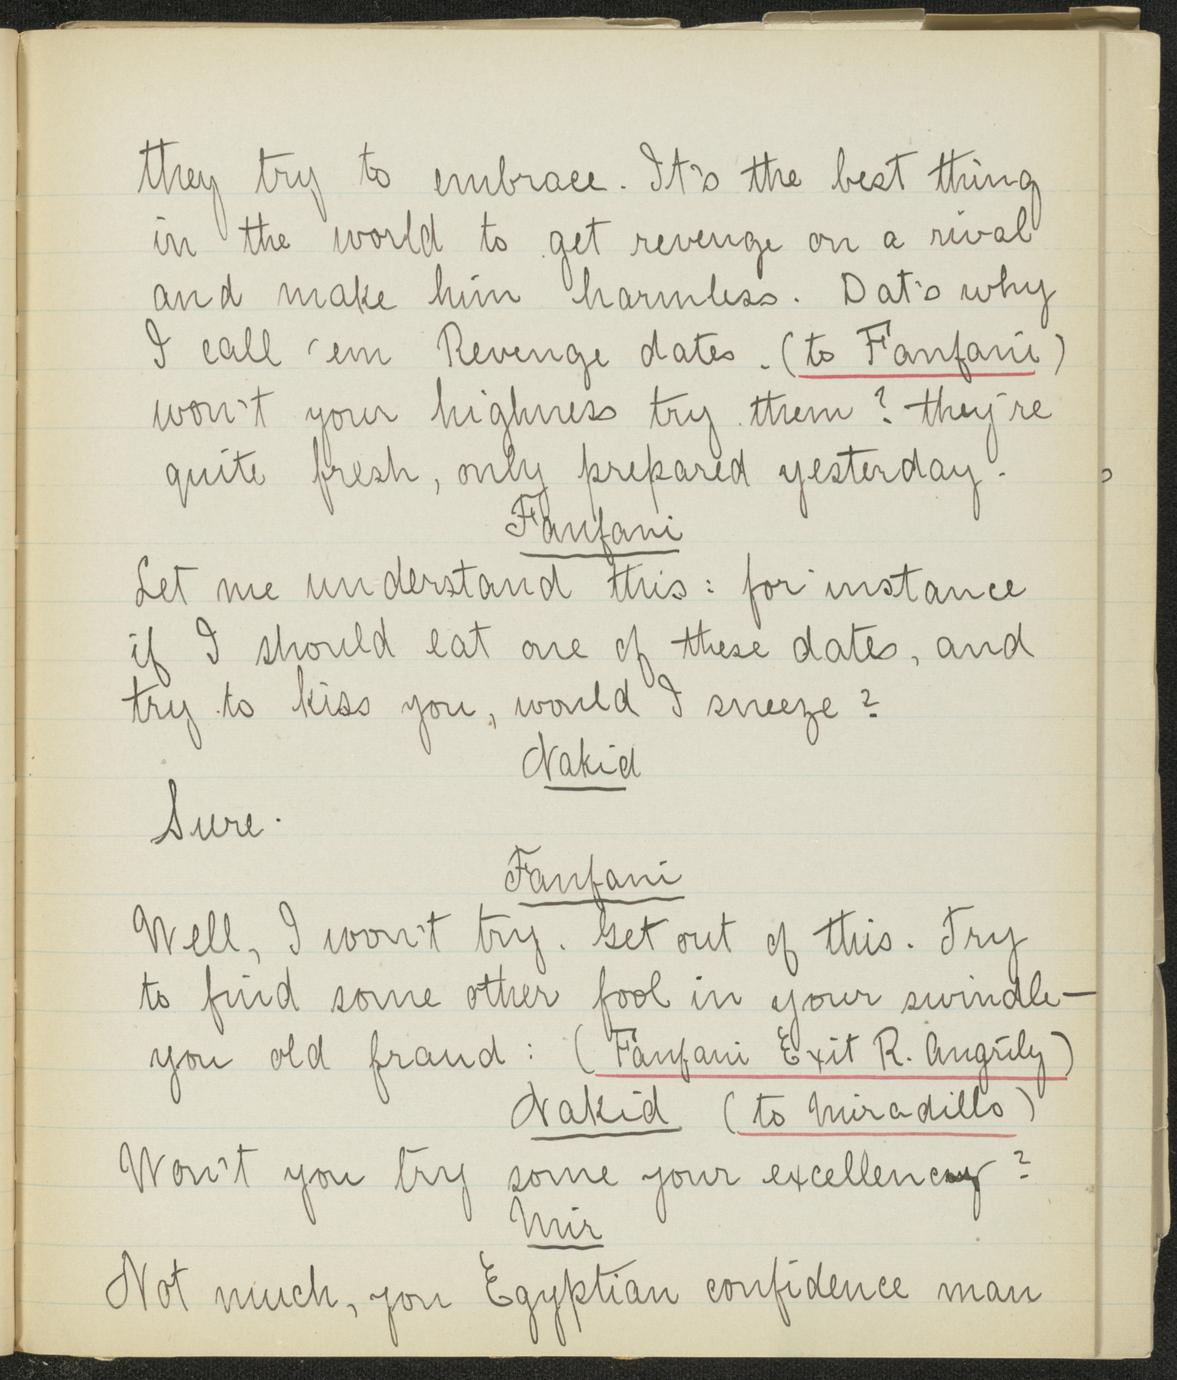 they try to embrace. It's the best thing
in the world to get revenge on a rival
and make him harmless. Dat's why
I call 'em Revenge dates. (to Fanfani)
won't your highness try them? they're
quite fresh, only prepared yesterday.
Fanfani
Let me understand this: for instance
if I should eat one of these dates, and
try to kiss you, would I sneeze?
Nakid
Sure.
Fanfani
Well, I won't try. Get out of this. Try
to find some other fool in your swindle—
you old fraud: (Fanfani Exit R. Angrily)
Nakid (to Miradillo)
Won't you try some your excellency?
Mir
Not much, you Egyptian confidence man